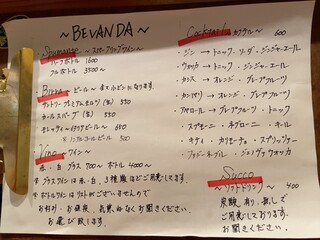 ~BEVANDA~
・Spumante ~スパークリングワイン~
ハーフボトル 1600
フルボトル 3500~
・Birra ~ビール~
サントリープレミアムモルツ(生) 550
カールスバーグ(生) 550
モレッティ~イタリアビール~ 680
※ノンアルコールビール 500
・Vino ~ワイン~
・赤・白 グラス 700~ ボトル 4000~
※グラスワインは赤・白、3種類ほどご用意してます。
※ボトルワインはリストがございませんので
お好み・お値段、気兼ねなくお聞きください。
お選び致します。
・Cocktail ~カクテル~ 600
・ジン → トニック・ソーダ・ジンジャーエール
・ウォッカ → トニック・ジンジャーエール
・カシス → オレンジ・グレープフルーツ
・カンパリ → オレンジ・グレープフルーツ
・アペロール → グレープフルーツ・トニック
・スプモーニ・ネグローニ・キール
・キティ・カリモーチョ・スプリッツァー
・ファジーネーブル・
・Succo
~ソフトドリンク~ 400
炭酸 有り・無しで
ご用意しております。
お聞きください。